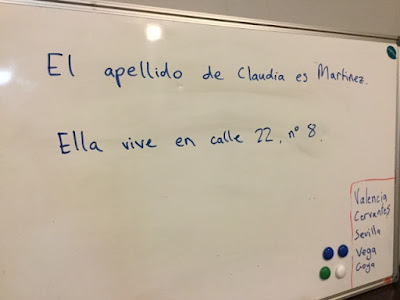 El apellido de Claudia es Martinez.
Ella vive en calle 22, nº 8.
Valencia
Cervantes
Sevilla
Vega
Goya